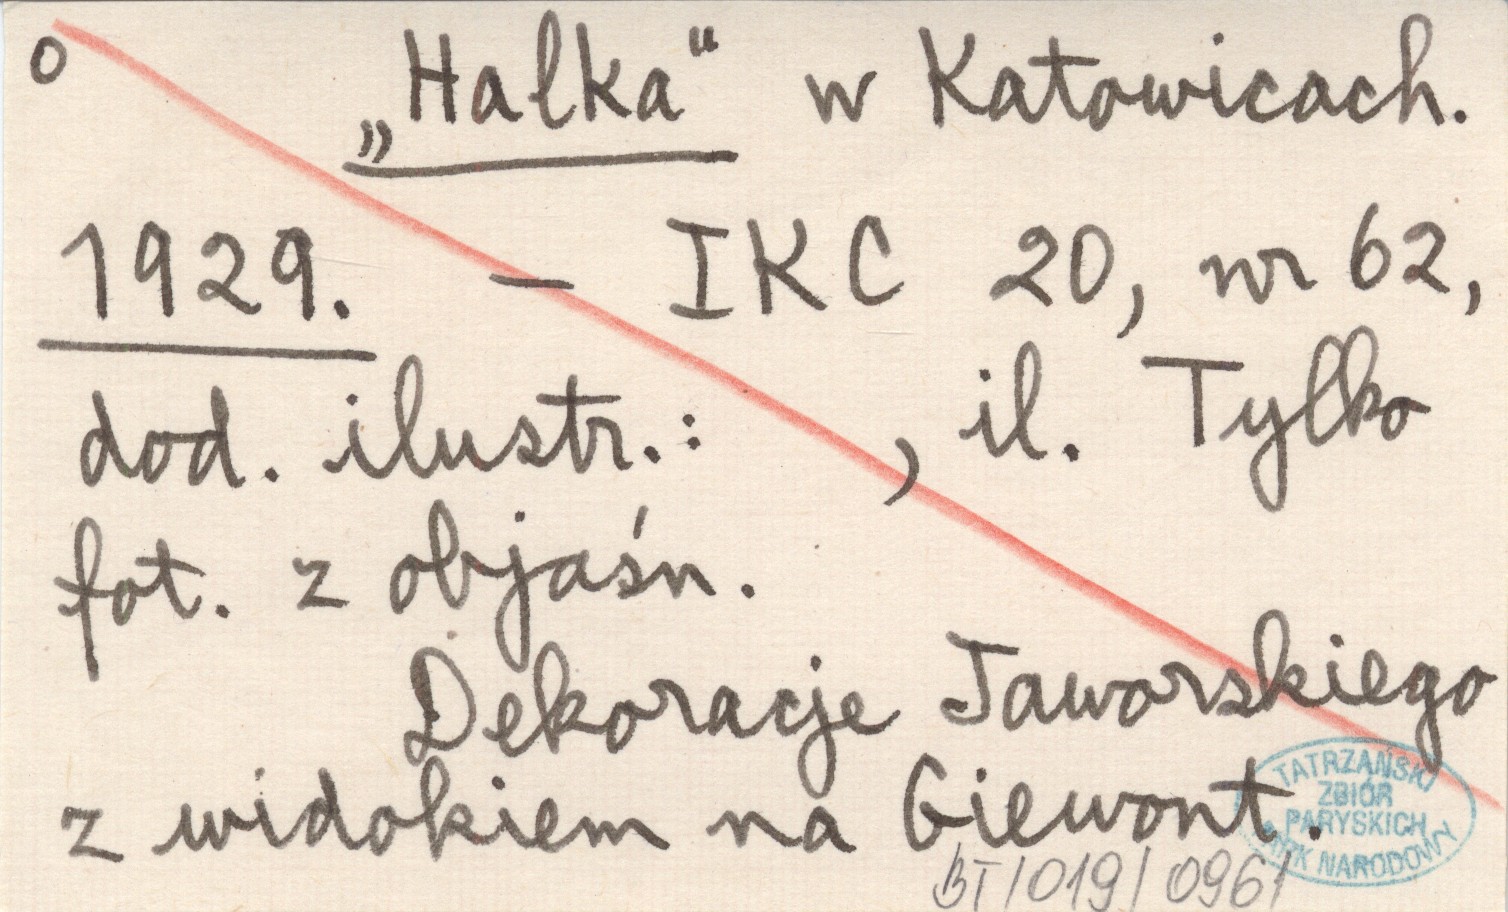 o „Halka“ w Katowicach.
1929. — IKC 20, nr 62,
dod. ilustr.: , il. Tylko
fot. z objaśn.
Dekoracje Jaworskiego
z widokiem na Giewont.
TATRZAŃSKI
ZBIÓR
PARYSKICH
PARK NARODOWY
BT/019/0961